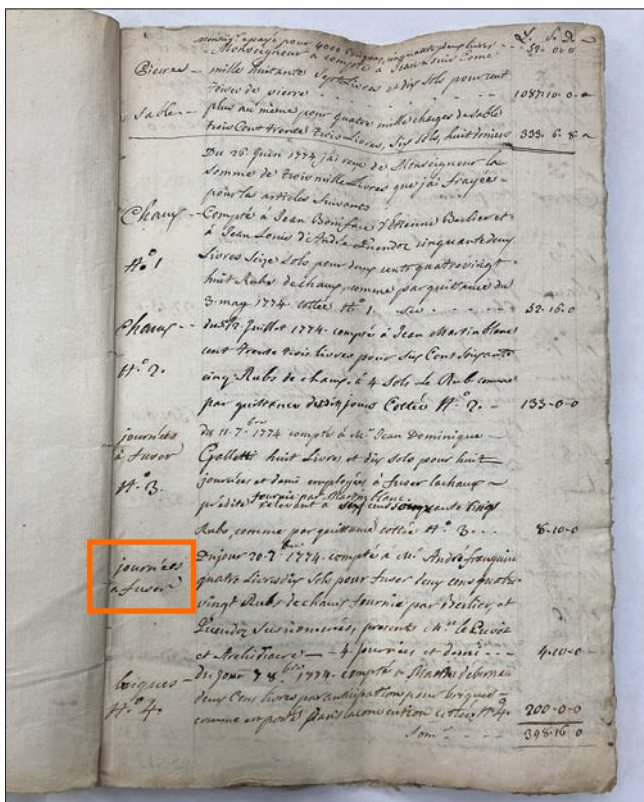 L. S. D.
monseigr a payé pour 4000 briques, cinquante deux livres -- 52-0-0
- Monseigneur a compté à Jean
Pierres - mille huitante sept Livres et dix sols pour cent
toises de pierre 1087-10-0
Sable - plus au même pour quatre mille charges de sable
trois Cent trente trois Livres, Six sols, huit deniers 333-6-8
Du 26 Juin 1774 j'ai reçu de Monseigneur la
Somme de trois mille Livres que j'ai frayées -
pour les articles Suivants
Chaux - Compté à Jean Boniface d'Etienne Berlier et
à Jean Louis d'André cinquante deux
N.° 1 Livres Seize Sols pour deux cents quatre vingt -
huit Rubs de chaux, comme par quittance du
3. may 1774. cottée N.° 1. 52-16-0
Chaux - du Juillet 1774. compté à Jean Martin blanc
cent trente trois Livres pour Six Cens soixante
N.° 2. cinq Rubs de chaux, à 4 Sols Le Rub comme
par quittance jour Cottée N.° 2. - 133-0-0
journées du 11-7.bre 1774 compté à Mr. Jean Dominique -
à fuser Galletti huit Livres et dix sols pour huit -
N.° 3. journées et demi employées à fuser la chaux -
prédite fournie par Martin blanc relevant à
Rubs, comme par quittance cottée N.° 3. 8-10-0
journées Du jour 20-7.bre 1774. compté à Mr. André
à fuser quatre Livres dix Sols pour fuser deux cens quatre
vingt Rubs de chaux fournie par Berlier, et
Susnommés, présents le Prevôt
et Archidiacre - 4. Journées et demi - - - 4-10-0
briques - du jour 7 8.bre 1774. compté à
N.° 4. deux Cens livres par anticipation pour briques -
comme est porté dans la convention cottée N.° 4. 200-0-0
Som 398-16 0